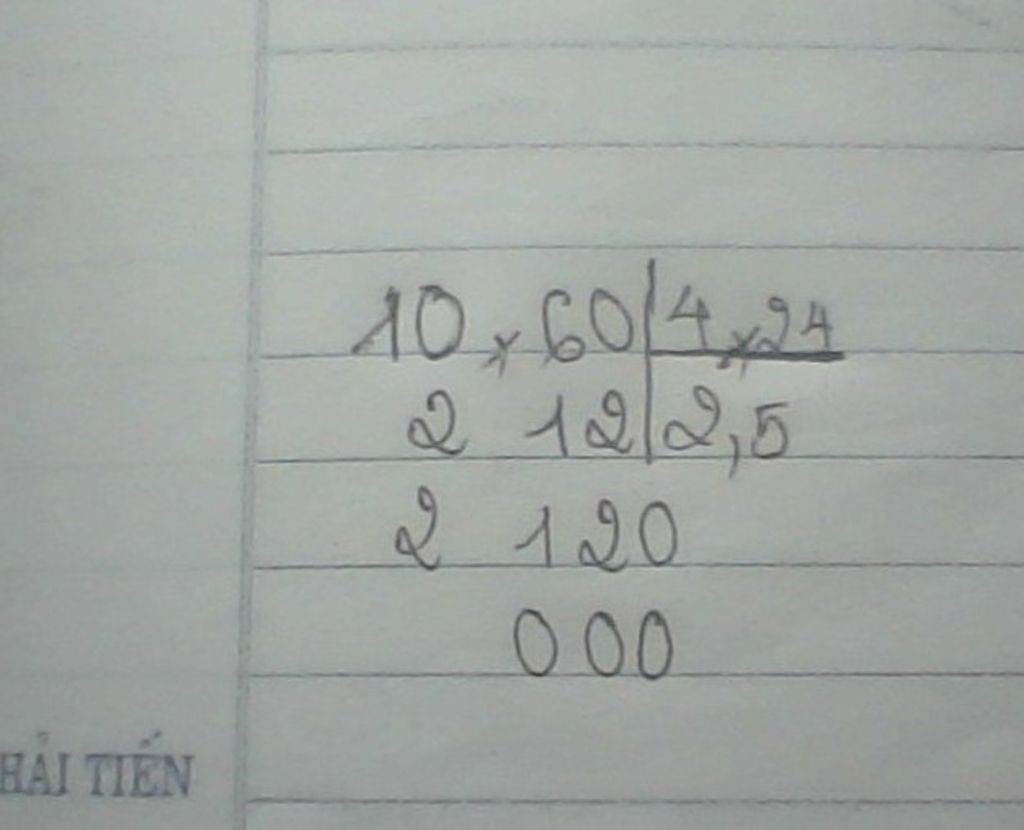 10 x 60 | 4 x 24
2 12 | 2,5
2 120
000
HẢI TIẾN